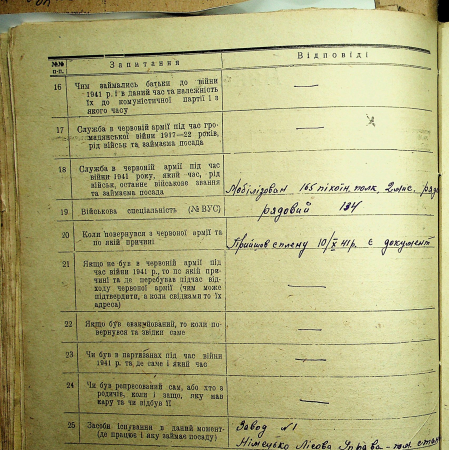 №№ п-п.
Запитання
Відповіді
16
Чим займались батьки до війни
1941 р. і в даний час та належність
їх до комуністичної партії і з
якого часу
—
17
Служба в червоній армії під час гро-
мадянської війни 1917—22 років,
рід військ та займаєма посада
—
18
Служба в червоній армії під час
війни 1941 року, який час, рід
військ, останнє військове звання
та займаєма посада
Мобілізован 165 піхоін. полк 2 міс.
19
Військова спеціальність (№ ВУС)
рядовий 134
20
Коли повернувся з червоної армії та
по якій причині
Прийшов с плену 10/X 41р. є документ
21
Якщо не був в червоній армії під
час війни 1941 р., то по якій при-
чині та де перебував підчас від-
ходу червоної армії (чим може
підтвердити, а коли свідками то їх
адреса)
—
22
Якщо був евакуйований, то коли по-
вернувся та звідки саме
—
23
Чи був в партизанах під час війни
1941 р. та де саме і який час
—
24
Чи був репресований сам, або хто з
родичів, коли і защо, яку мав
кару та чи відбув її
—
25
Засоби існування в даний момент-
(де працює і яку займає посаду)
Завод №1
Німецько Лісова Управа -